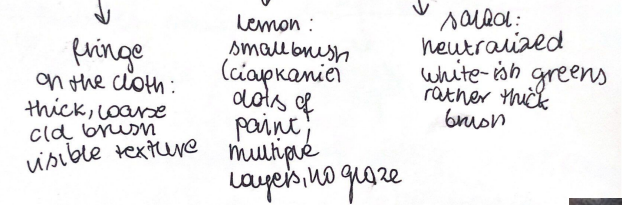 fringe
on the cloth:
thick, coarse
old brush
visible texture
lemon:
small brush
(ciapkanie)
dots of
paint,
multiple
layers, no glaze
salad:
neutralized
white-ish greens
rather thick
brush